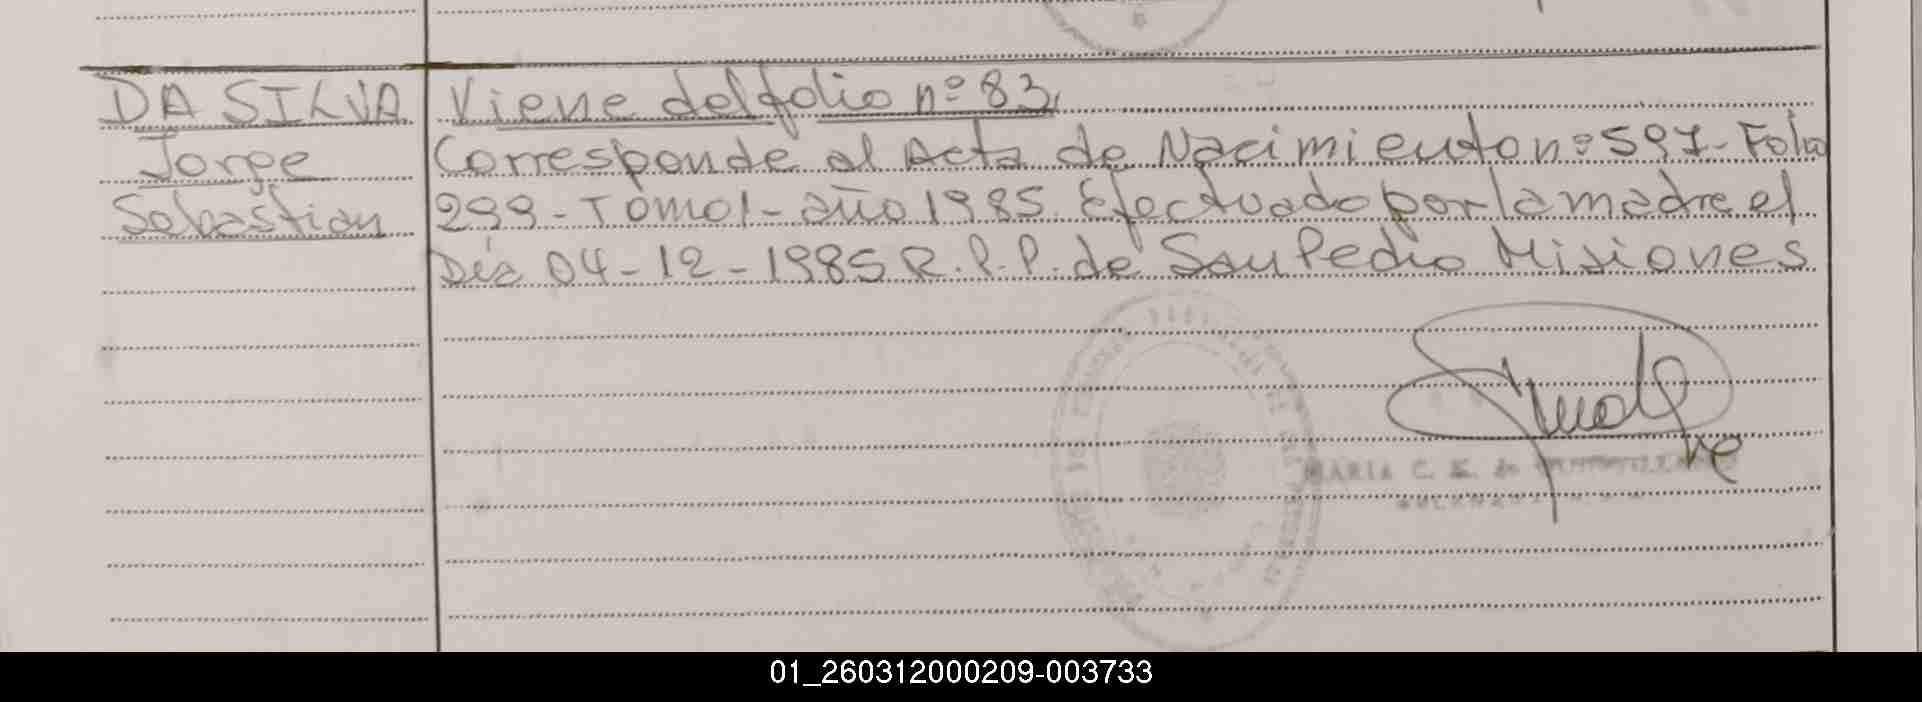 DA SILVA
Jorge
Sebastian
Viene del folio nº 83,
Corresponde al Acta de Nacimiento nº 597 - Folio
299 - Tomo 1 - año 1985. Efectuado por la madre el
Día 04 - 12 - 1985 R.P.P. de San Pedro Misiones
MARIA C. E. de
01_260312000209-003733